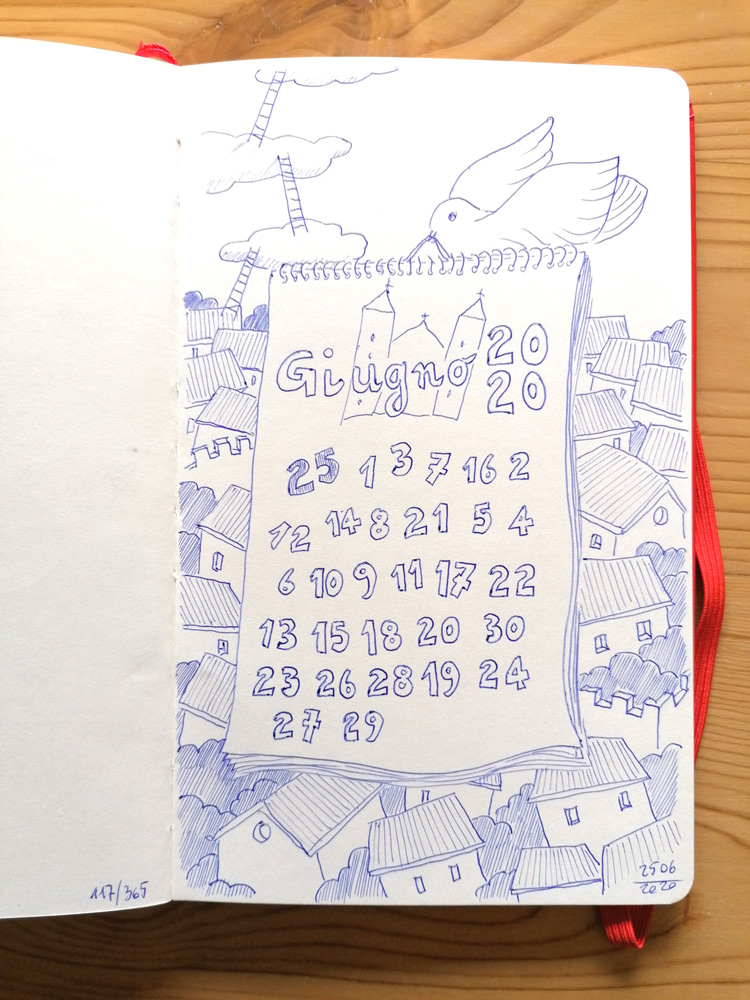 Giugno 20
20
25 1 3 7 16 2
12 14 8 21 5 4
6 10 9 11 17 22
13 15 18 20 30
23 26 28 19 24
27 29
117/365
2506
2020